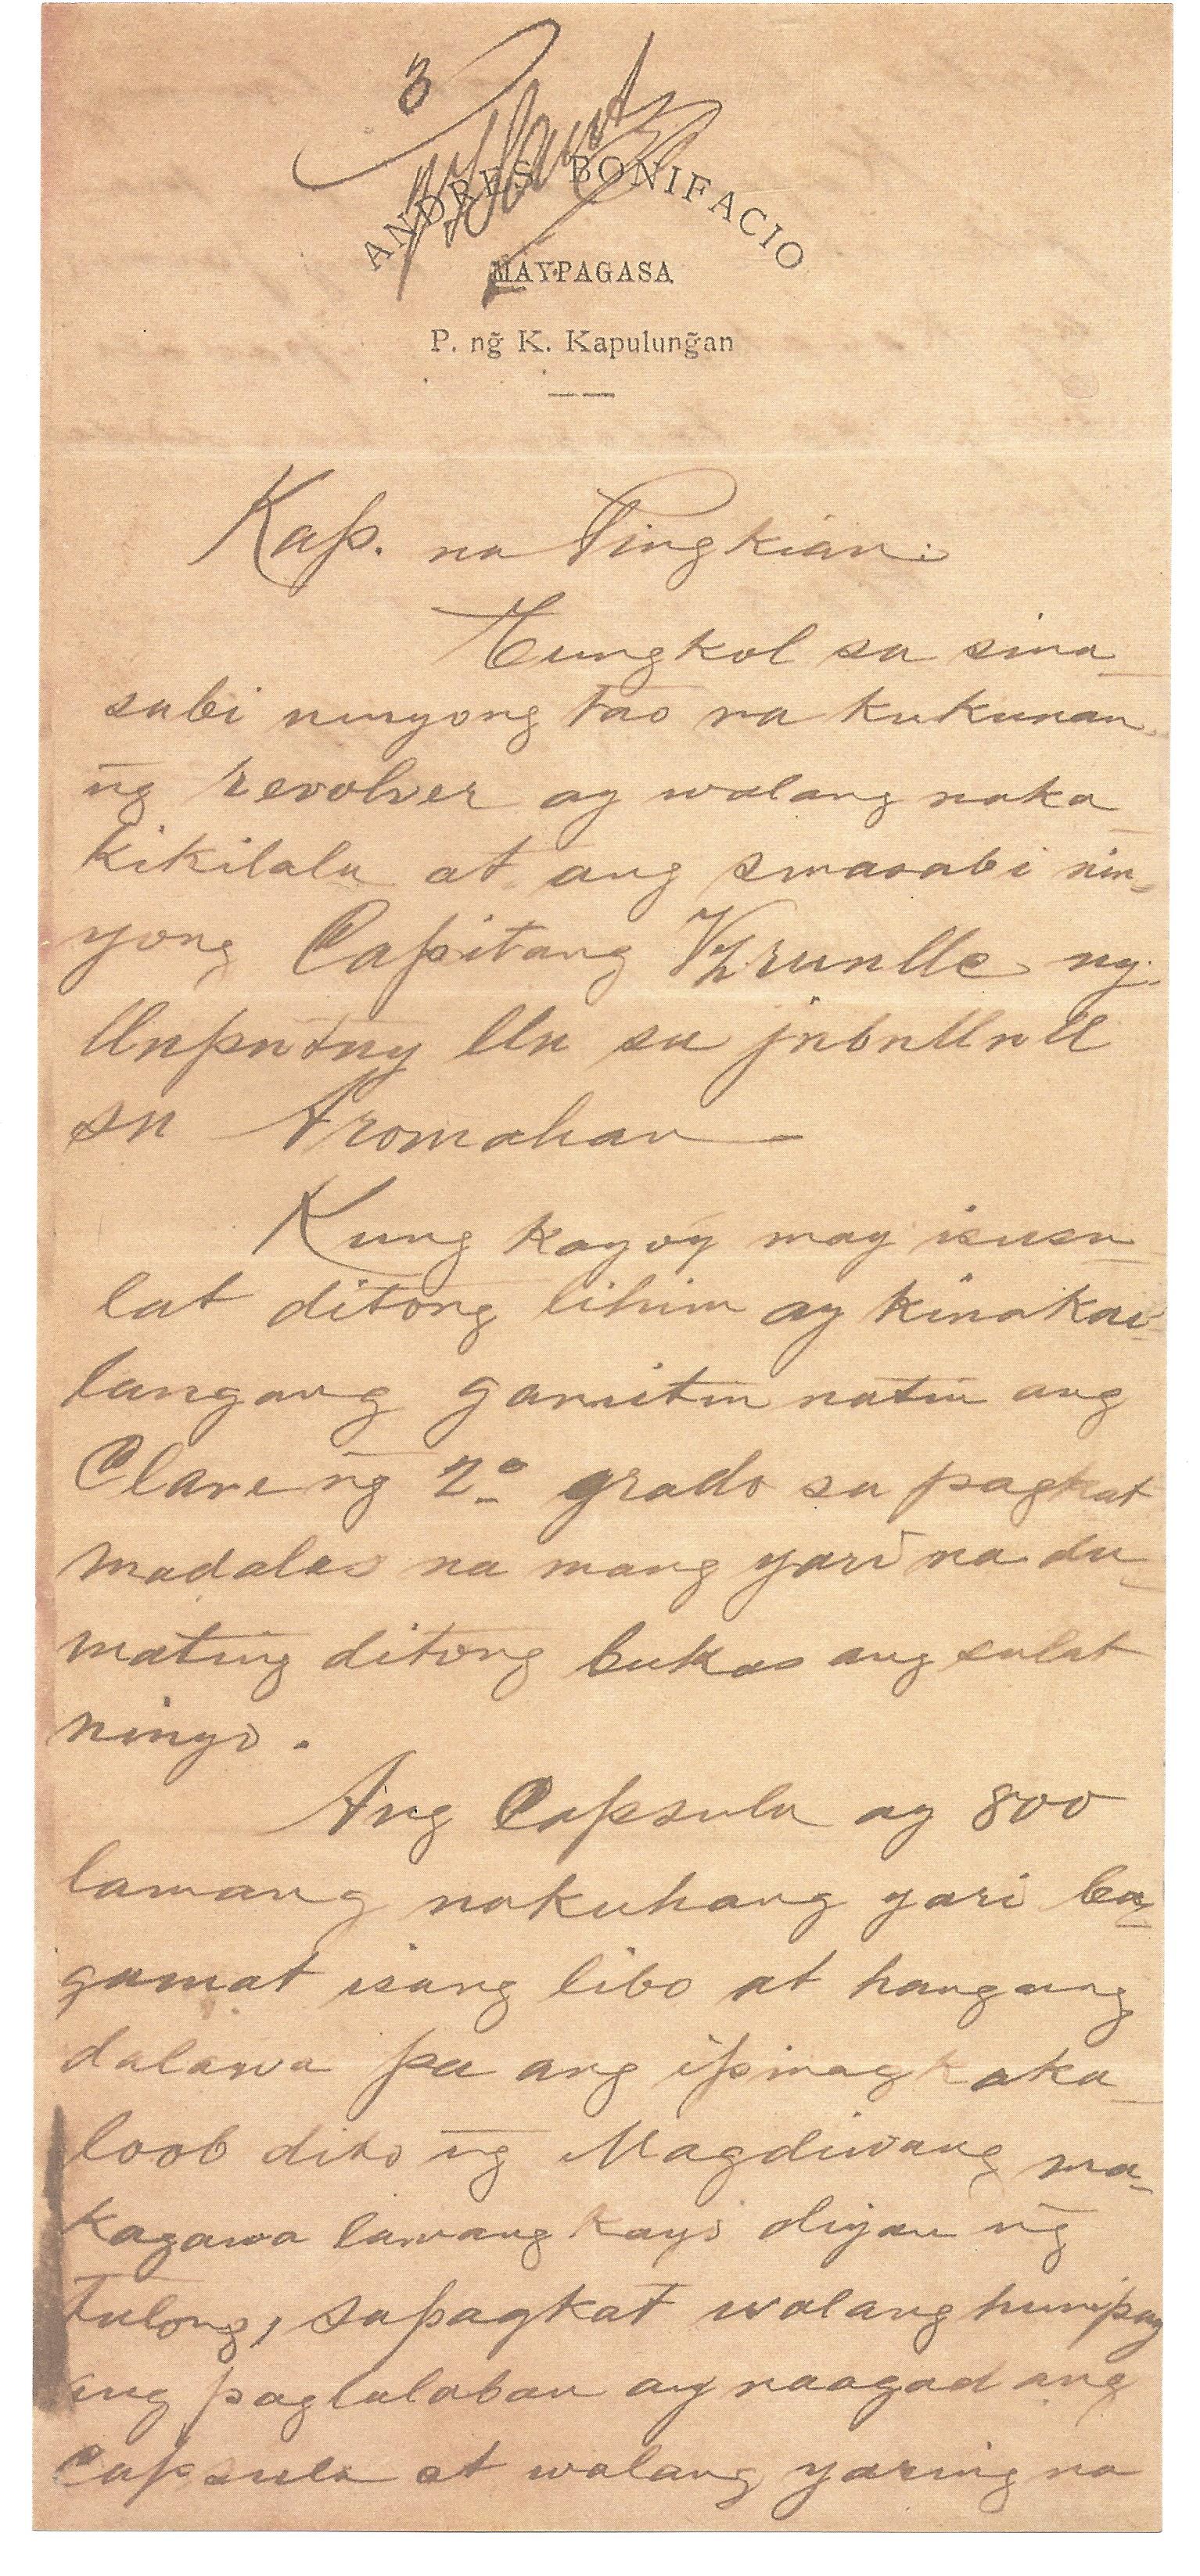 3
ANDRES BONIFACIO
MAYPAGASA
P. ng̃ K. Kapulung̃an
Kap. na Pingkian:
Tungkol sa sina-
sabi ninyong tao na kukunan
n̄g revolver ay walang naka-
kikilala at ang sinasabi nin-
yong Capitang
llnpntny lln sa jnbnllnll
sn Aromahan
Kung kayo'y may isusu-
lat ditong lihim ay kinakai-
langang gamitin natin ang
Clave n̄g 2º grado sa pagkat
madalas na mang yari na du-
mating ditong bukas ang sulat
ninyo.
Ang Capsula ay 800
lamang nakuhang yari ba-
gamat isang libo at hangang
dalawa pa ang ipinagkaka-
loob dito n̄g Magdiwang ma-
kagawa lamang kayo diyan n̄g
tulong, sapagkat walang humpay
ang paglalaban ay naagad ang
Capsula at walang yaring na